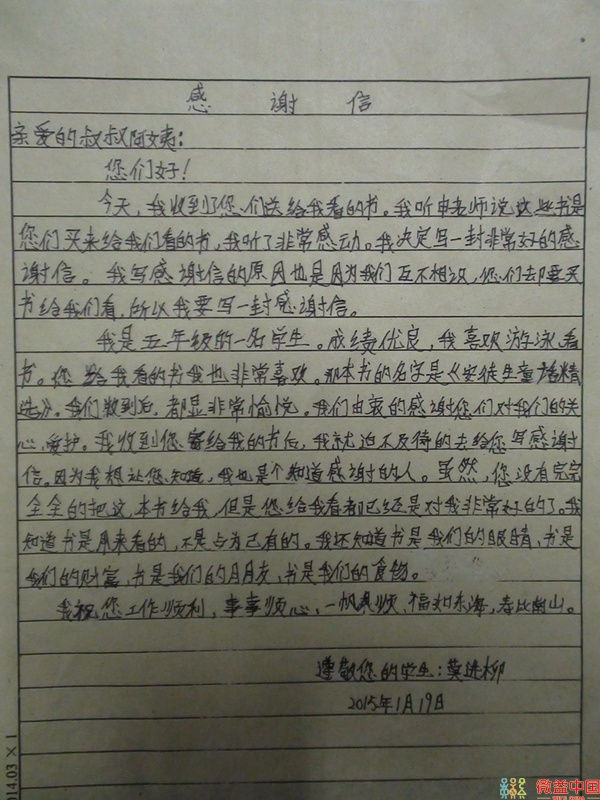 感谢信
亲爱的叔叔阿姨：
您们好！
今天，我收到了您们送给我看的书。我听申老师说这些书是
您们买来给我们看的书，我听了非常感动。我决定写一封非常好的感
谢信。我写感谢信的原因也是因为我们互不相识，您们却要买
书给我们看，所以我要写一封感谢信。
我是五年级的一名学生。成绩优良，我喜欢游泳看
书。您给我看的书我也非常喜欢。那本书的名字是《安徒生童话精
选》。我们收到后，都显非常愉悦。我们由衷的感谢您们对我们的关
心、爱护。我收到您寄给我的书后，我就迫不及待的去给您写感谢
信。因为我想让您知道，我也是个知道感谢的人。虽然，您没有完完
全全的把这本书给我，但是您给我看都已经是对我非常好的了。我
知道书是用来看的，不是占为己有的。我还知道书是我们的眼睛，书是
我们的财富，书是我们的朋友，书是我们的食物。
我祝您工作顺利，事事顺心，一帆风顺，福如东海，寿比南山。
尊敬您的学生：莫进柳
2015年1月19日
014.03×1
微益中国